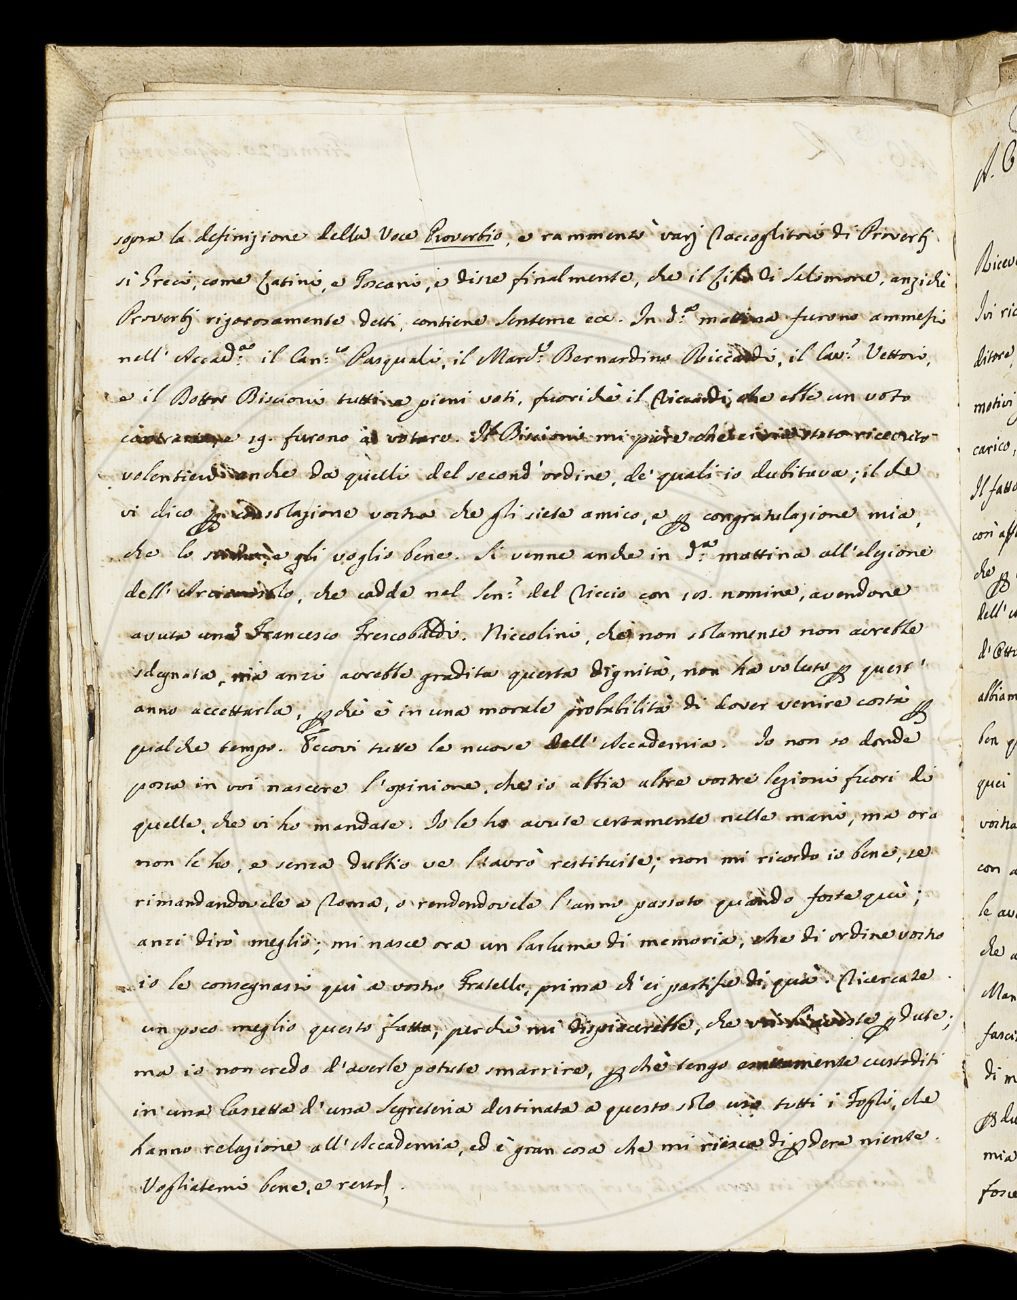 sopra la definizione della Voce Proverbio, e rammentò varj Raccoglitori di Proverbj
sì Greci, come Latini, e Toscani, e disse finalmente, che il Lib. di Salomone, anzichè
Proverbj rigorosamente detti, contiene Sentenze ecc. In d.ª mattina furono ammessi
nell' Accad.ª il Can.co Pasquali, il March.e Bernardino Riccardi, il Cav.r Vettori,
e il Dottor Biscioni tutti a pieni voti, fuorichè il Riccardi, che ebbe un voto
contrario, e 19. furono a votare. Il Biscioni mi pare che ci sia stato ricevuto
volentieri anche da quelli del second'ordine, de' quali io dubitava; il che
vi dico per consolazione vostra che gli siete amico, e per congratulazione mia,
che lo stimo, e gli voglio bene. Si venne anche in d.ª mattina all'elezione
dell' Arciconsolo, che cadde nel Sen.r del Riccio con 105. nomine, avendone
avute una Francesco Frescobaldi. Niccolini, che non solamente non avrebbe
sdegnata, mà anzi avrebbe gradita questa dignità, non ha voluto per quest'
anno accettarla, perchè è in una morale probabilità di dover venire costà per
qualche tempo. Eccovi tutte le nuove dell' Accademia. Io non so donde
possa in voi nascere l'opinione, che io abbia altre vostre lezioni fuori di
quelle, che vi ho mandate. Io le ho avute certamente nelle mani, ma ora
non le ho, e senza dubbio ve l'avrò restituite; non mi ricordo io bene, se
rimandandovele a Roma, o rendendovele l'anno passato quando foste quà;
anzi dirò meglio; mi nasce ora un barlume di memoria, che di ordine vostro
io le consegnassi quì a vostro Fratello, prima ch'ei partisse di quà. Ricercate
un poco meglio questo fatto, perchè mi dispiacerebbe, che perdute;
ma io non credo d'averle potute smarrire, perchè tengo esattamente custoditi
in una Cassetta d'una Segreteria destinata a questo solo uso tutti i Fogli, che
hanno relazione all' Accademia, ed è gran cosa che mi riesca di perdere niente.
Vogliatemi bene, e resto.